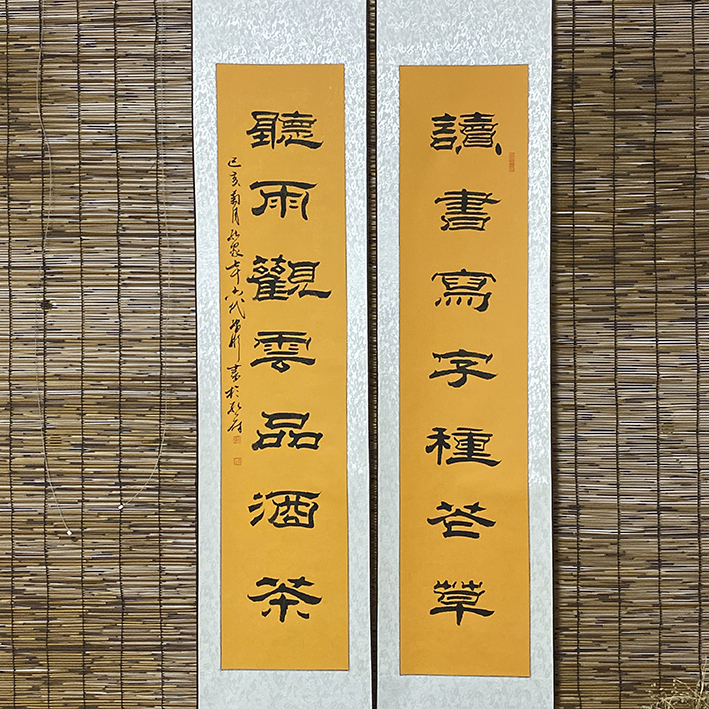 讀書寫字種花草
聽雨觀雲品酒茶
己亥 月 書於